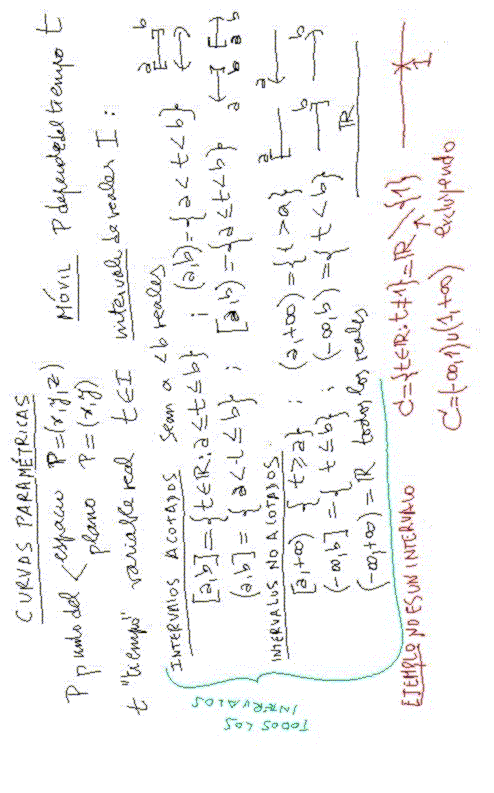 CURVAS PARAMÉTRICAS
P punto del < espacio P=(x,y,z) MÓVIL P depende del tiempo t
plano P=(x,y)
t "tiempo" variable real t∈I intervalo de reales I:
INTERVALOS ACOTADOS Sean a<b reales
[a,b]={t∈ℝ:a≤t≤b} ; (a,b)={a<t<b} a b
(a,b]={a<t≤b} ; [a,b)={a≤t<b} a b a b
INTERVALOS NO ACOTADOS
[a,+∞) {t≥a} ; (a,+∞)={t>a} a a
(-∞,b]={t≤b} ; (-∞,b)={t<b} b b
(-∞,+∞)=ℝ todos los reales ℝ
TODOS LOS
INTERVALOS
EJEMPLO NO ES UN INTERVALO C={t∈ℝ:t≠1}=ℝ\{1} 1
C=(-∞,1)∪(1,+∞) excluyendo